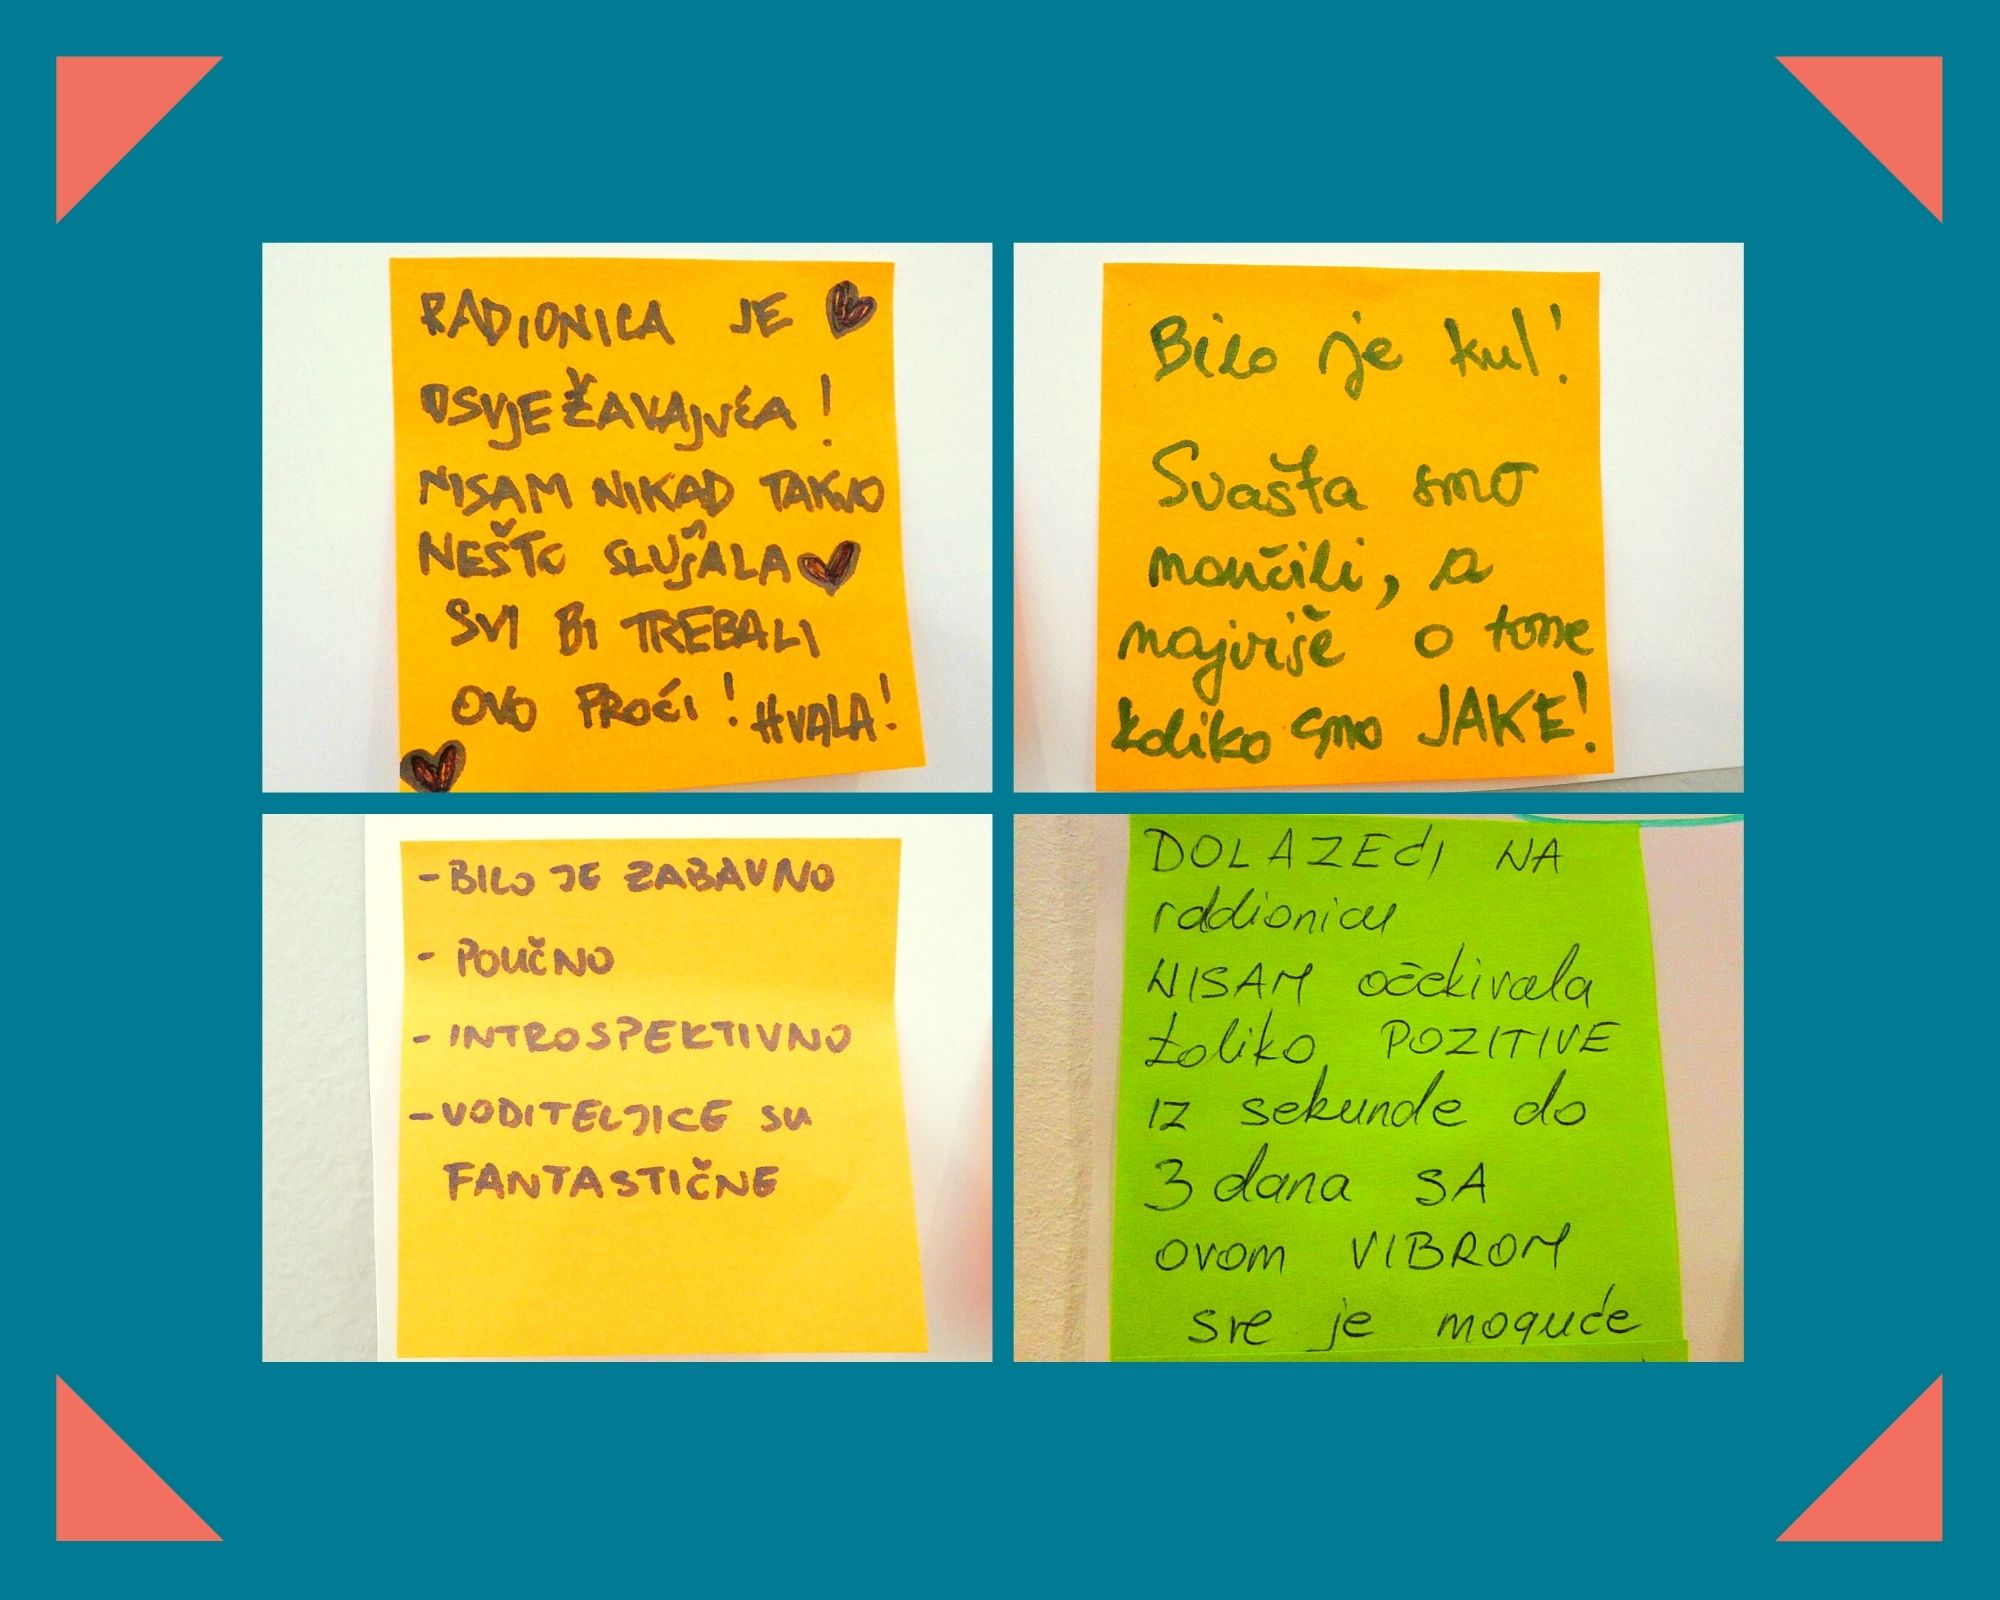 RADIONICA JE
OSVJEŽAVAJUĆA!
NISAM NIKAD TAKVO
NEŠTO SLUŠALA
SVI BI TREBALI
OVO PROĆI! HVALA!
Bilo je kul!
Svašta smo
naučili, a
najviše o tome
koliko smo JAKE!
- BILO JE ZABAVNO
- POUČNO
- INTROSPEKTIVNO
- VODITELJICE SU
FANTASTIČNE
DOLAZEĆI NA
radionicu
NISAM očekivala
toliko POZITIVE
IZ sekunde do
3 dana SA
ovom VIBROM
sve je moguće